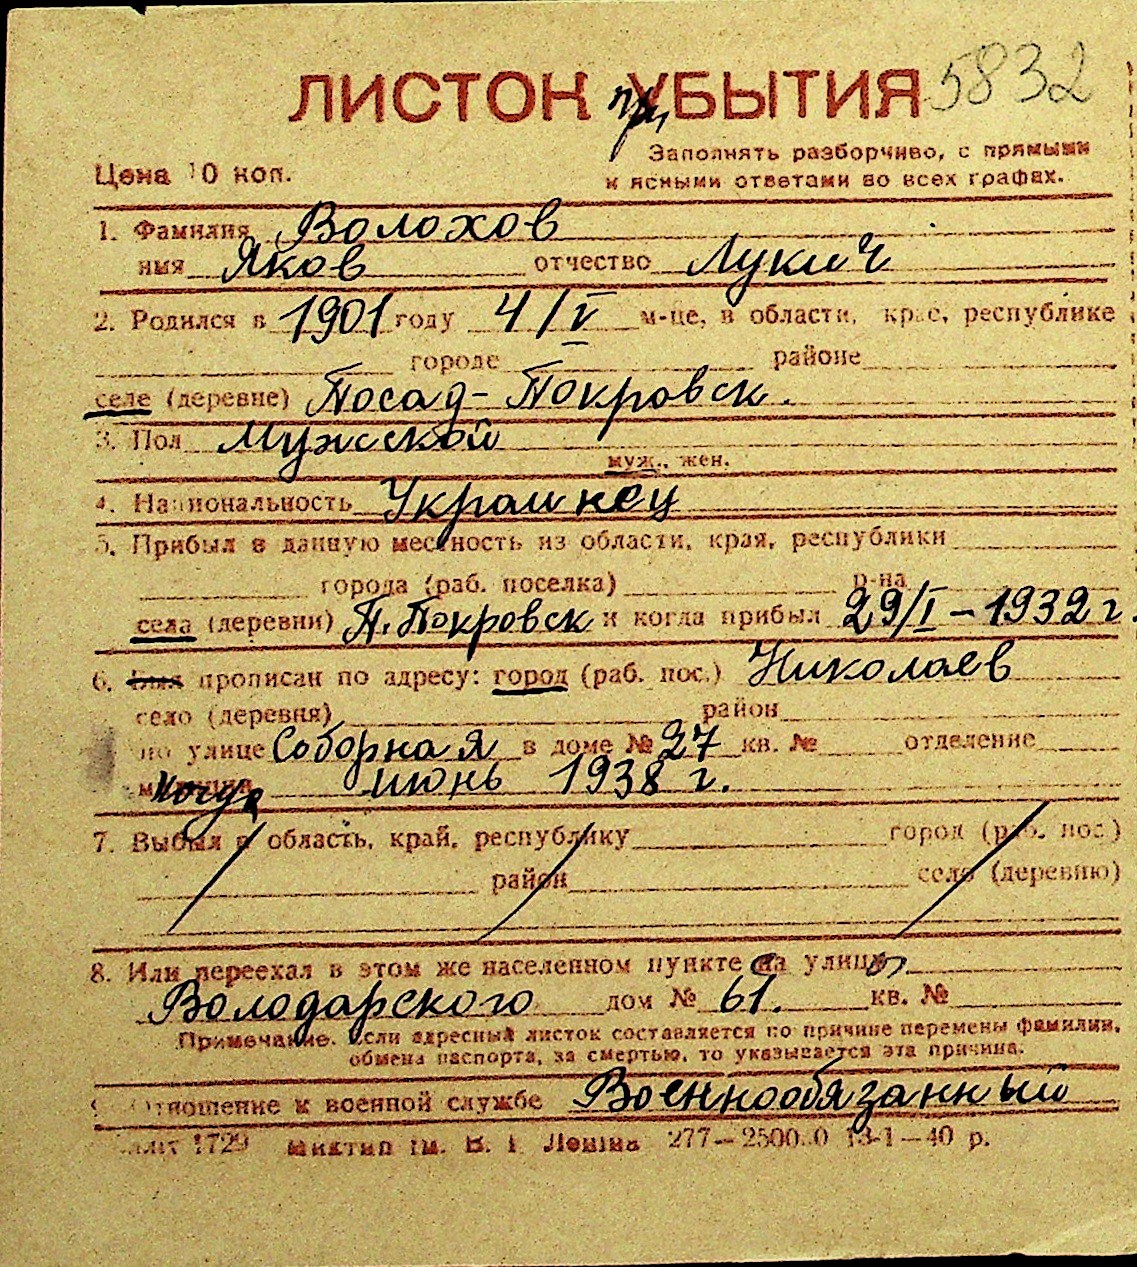 5832
ЛИСТОК УБЫТИЯ
при
Цена 10 коп.
Заполнять разборчиво, с прямыми
и ясными ответами во всех графах.
1. Фамилия Волохов
имя Яков отчество Лукич
2. Родился в 1901 году 4/V м-це, в области, крае, республике
городе районе
селе (деревне) Посад-Покровск.
3. Пол Мужской
муж., жен.
4. Национальность Украинец
5. Прибыл в данную местность из области, края, республики
города (раб. поселка) р-на
села (деревни) П. Покровск и когда прибыл 29/I-1932 г.
6. Был прописан по адресу: город (раб. пос.) Николаев
село (деревня) район
по улице Соборная в доме № 27 кв. № отделение
милиции Когда июнь 1938 г.
7. Выбыл в область, край, республику город (раб. пос.)
район село (деревню)
8. Или переехал в этом же населенном пункте на улицу
Володарского дом № 61. кв. №
Примечание. Если адресный листок составляется по причине перемены фамилии,
обмена паспорта, за смертью, то указывается эта причина.
9. Отношение к военной службе Военнообязанный
1729 ім. В. І. Леніна 277— 13-1—40 р.